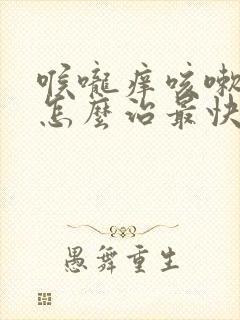 喉嚨痒咳嗽
怎麼治最快
愚舞重生